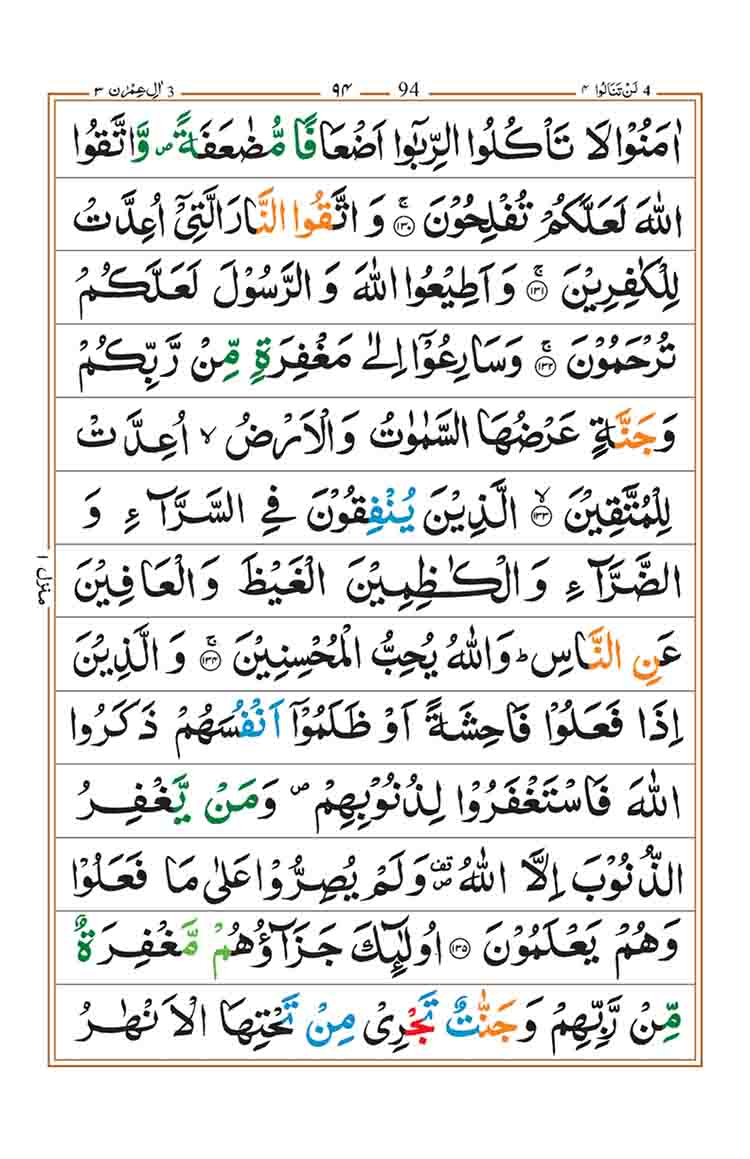 4 لَنْ تَنَالُوا ۴ 94 ۹۴ 3 اٰلِ عِمْرٰن ۳
اٰمَنُوْا لَا تَاْكُلُوا الرِّبٰٓوا اَضْعَافًا مُّضٰعَفَةً ۪ وَّاتَّقُوا
اللّٰهَ لَعَلَّكُمْ تُفْلِحُوْنَ ۚ ﴿۱۳۰﴾ وَ اتَّقُوا النَّارَ الَّتِیْۤ اُعِدَّتْ
لِلْكٰفِرِیْنَ ۚ ﴿۱۳۱﴾ وَ اَطِیْعُوا اللّٰهَ وَ الرَّسُوْلَ لَعَلَّكُمْ
تُرْحَمُوْنَ ۚ ﴿۱۳۲﴾ وَسَارِعُوْۤا اِلٰى مَغْفِرَةٍ مِّنْ رَّبِّكُمْ
وَجَنَّةٍ عَرْضُهَا السَّمٰوٰتُ وَالْاَرْضُ ۙ اُعِدَّتْ
لِلْمُتَّقِیْنَ ۙ ﴿۱۳۳﴾ الَّذِیْنَ یُنْفِقُوْنَ فِی السَّرَّآءِ وَ
الضَّرَّآءِ وَالْكٰظِمِیْنَ الْغَیْظَ وَالْعَافِیْنَ
عَنِ النَّاسِ ؕ وَاللّٰهُ یُحِبُّ الْمُحْسِنِیْنَ ۚ ﴿۱۳۴﴾ وَ الَّذِیْنَ
اِذَا فَعَلُوْا فَاحِشَةً اَوْ ظَلَمُوْۤا اَنْفُسَهُمْ ذَكَرُوا
اللّٰهَ فَاسْتَغْفَرُوْا لِذُنُوْبِهِمْ ۪ وَمَنْ یَّغْفِرُ
الذُّنُوْبَ اِلَّا اللّٰهُ ۪۫ وَلَمْ یُصِرُّوْا عَلٰى مَا فَعَلُوْا
وَهُمْ یَعْلَمُوْنَ ﴿۱۳۵﴾ اُولٰٓئِكَ جَزَآؤُهُمْ مَّغْفِرَةٌ
مِّنْ رَّبِّهِمْ وَجَنّٰتٌ تَجْرِیْ مِنْ تَحْتِهَا الْاَنْهٰرُ
منزل ۱